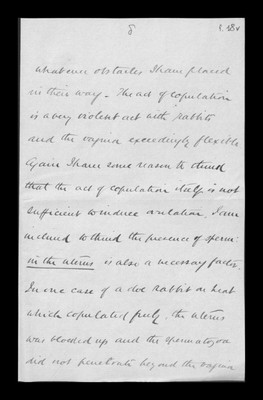 8
whatever obstacles I have placed
in their way. The act of copulation
is a very violent act with rabbits
and the vagina exceedingly flexible
Again I have some reason to think
that the act of copulation itself is not
sufficient to induce ovulation. I am
inclined to think the presence of sperm
in the uterus is also a necessary factor.
In one case of a doe rabbit on heat
which copulated freely, the uterus
was blocked up and the spermatozoa
did not penetrate beyond the vagina